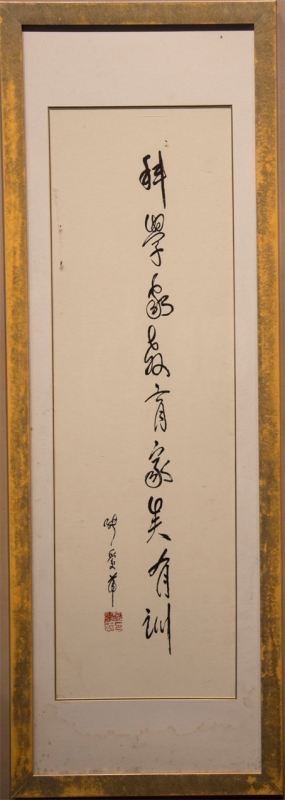 科學家教育家吳有訓